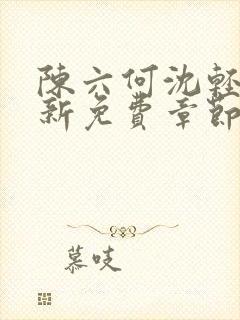 陳六何沈輕
新免費章節
慕吱